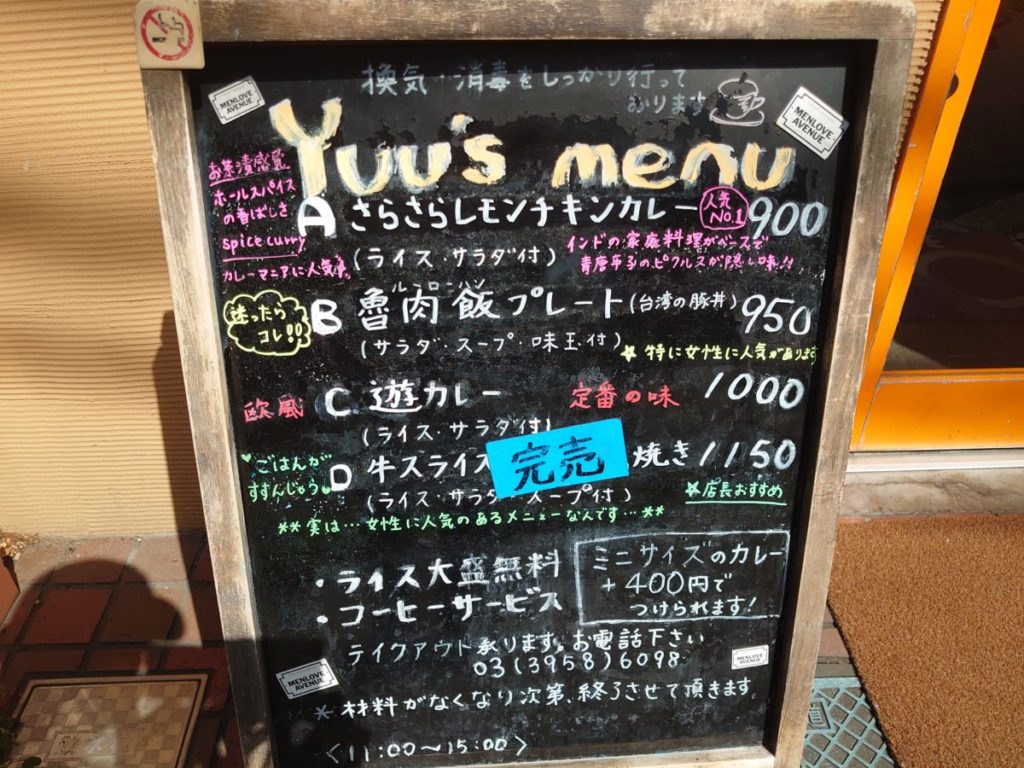 換気・消毒をしっかり行って
おります
MENLOVE AVENUE
MENLOVE AVENUE
Yuu's menu
お茶漬感覚
ホールスパイス
の香ばしさ
spice curry
カレーマニアに人気
A さらさらレモンチキンカレー 人気No.1 900
(ライス・サラダ付)
インドの家庭料理がベースで
青唐辛子のピクルスが隠し味!!
迷ったら
コレ!!
ルーローハン
B 魯肉飯プレート(台湾の豚丼) 950
(サラダ・スープ・味玉付)
☆特に女性に人気があります
欧風 C 遊カレー 定番の味 1000
(ライス・サラダ付)
ごはんが
すすんじゃう
D 牛スライス 完売 焼き 1150
(ライス・サラダ・スープ付)
☆店長おすすめ
**実は…女性に人気のあるメニューなんです…**
・ライス大盛無料
・コーヒーサービス
ミニサイズのカレー
+400円で
つけられます!
テイクアウト承ります。お電話下さい
03(3958)6098
MENLOVE AVENUE
MENLOVE AVENUE
*材料がなくなり次第、終了させて頂きます。
<11:00~15:00>